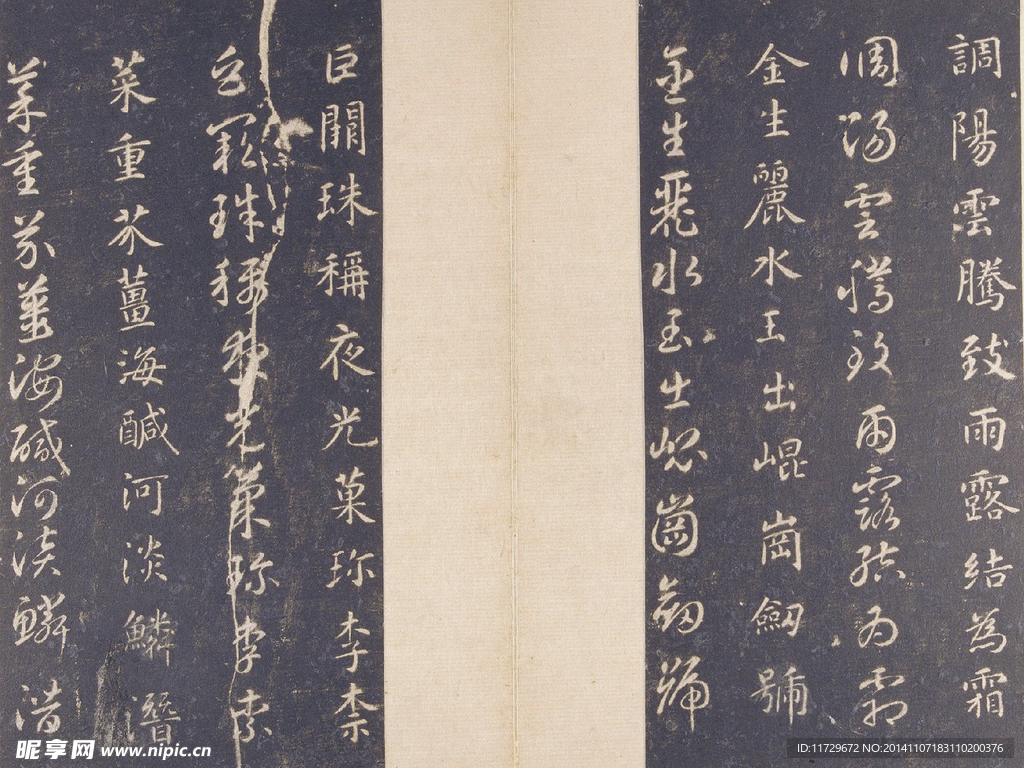 調陽雲騰致雨露結為霜
調陽雲騰致雨露結為霜
金生麗水玉出崐崗劒號
金生麗水玉出崐崗劒號
巨闕珠稱夜光菓珎李柰
巨闕珠稱夜光菓珎李柰
菜重芥薑海鹹河淡鱗潛
菜重芥薑海鹹河淡鱗潛
昵享网 www.nipic.cn
ID:11729672 NO:20141107183110200376